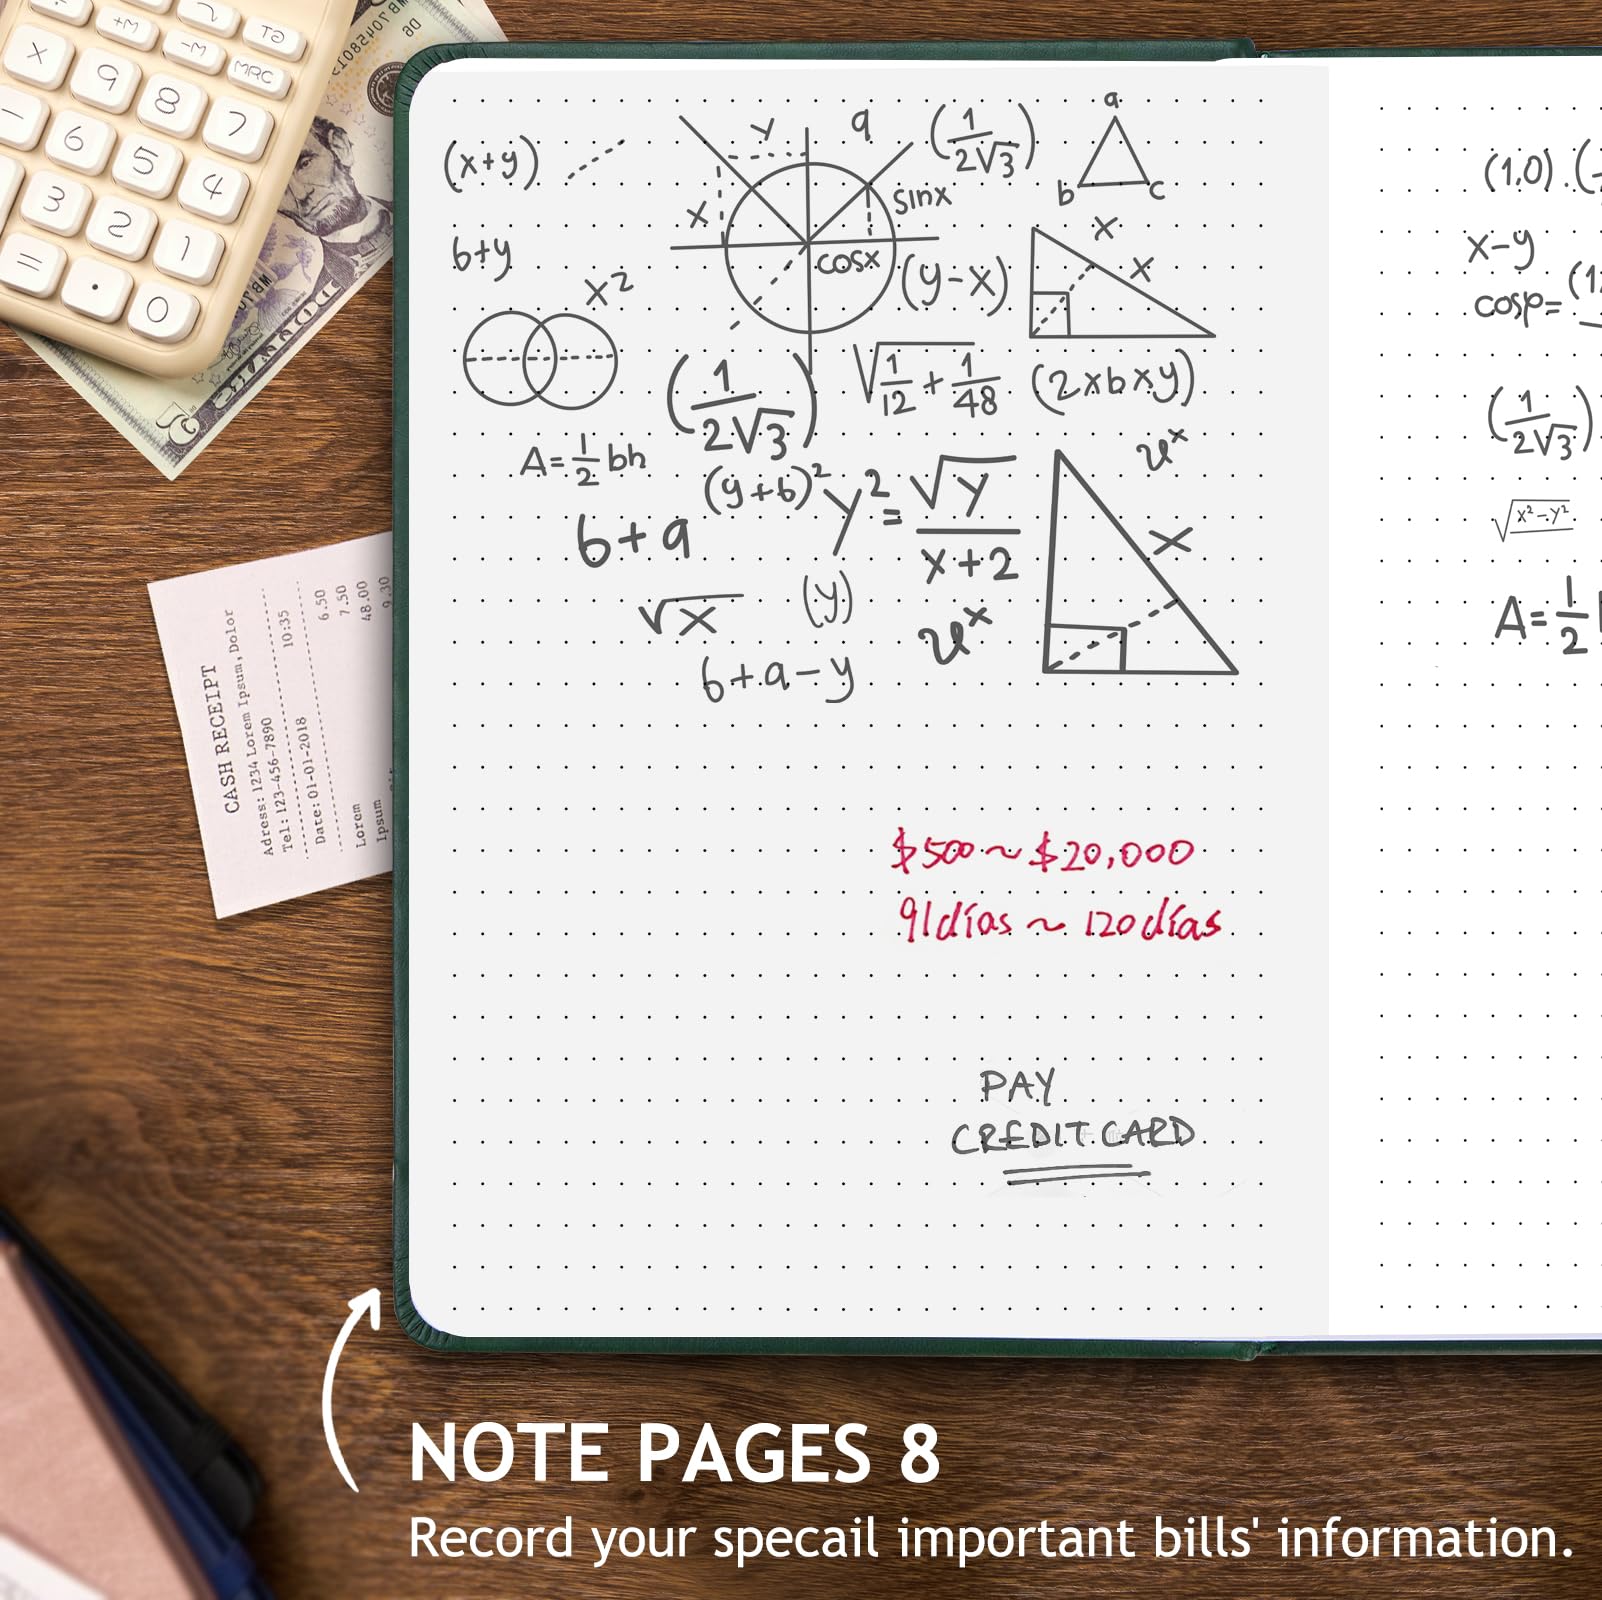 +M
2
T5
X
9
-M
MRC
8
7
-
6
5
4
3
2
1
=
.
0
CASH RECEIPT
Adress: 1234 Lorem Ipsum, Dolor
Tel: 123-456-7890
Date: 01-01-2018 10:35
Lorem 6.50
Ipsum 7.50
48.00
9.30
(x+y)
y
q
(1/2√3)
a
b
c
x
sinx
cosx
6+y
x²
(y-x)
x
x
(1/2√3)
√1/12+1/48
(2xbxy)
A=1/2 bh
(y+6)²
6+a
y²=√y/x+2
x
√x
(y)
6+a-y
$500~$20,000
91días ~ 120días
PAY
CREDIT CARD
(1,0).(
x-y
cosp=
(1/2√3)
√x²-y²
A=1/2
NOTE PAGES 8
Record your specail important bills' information.